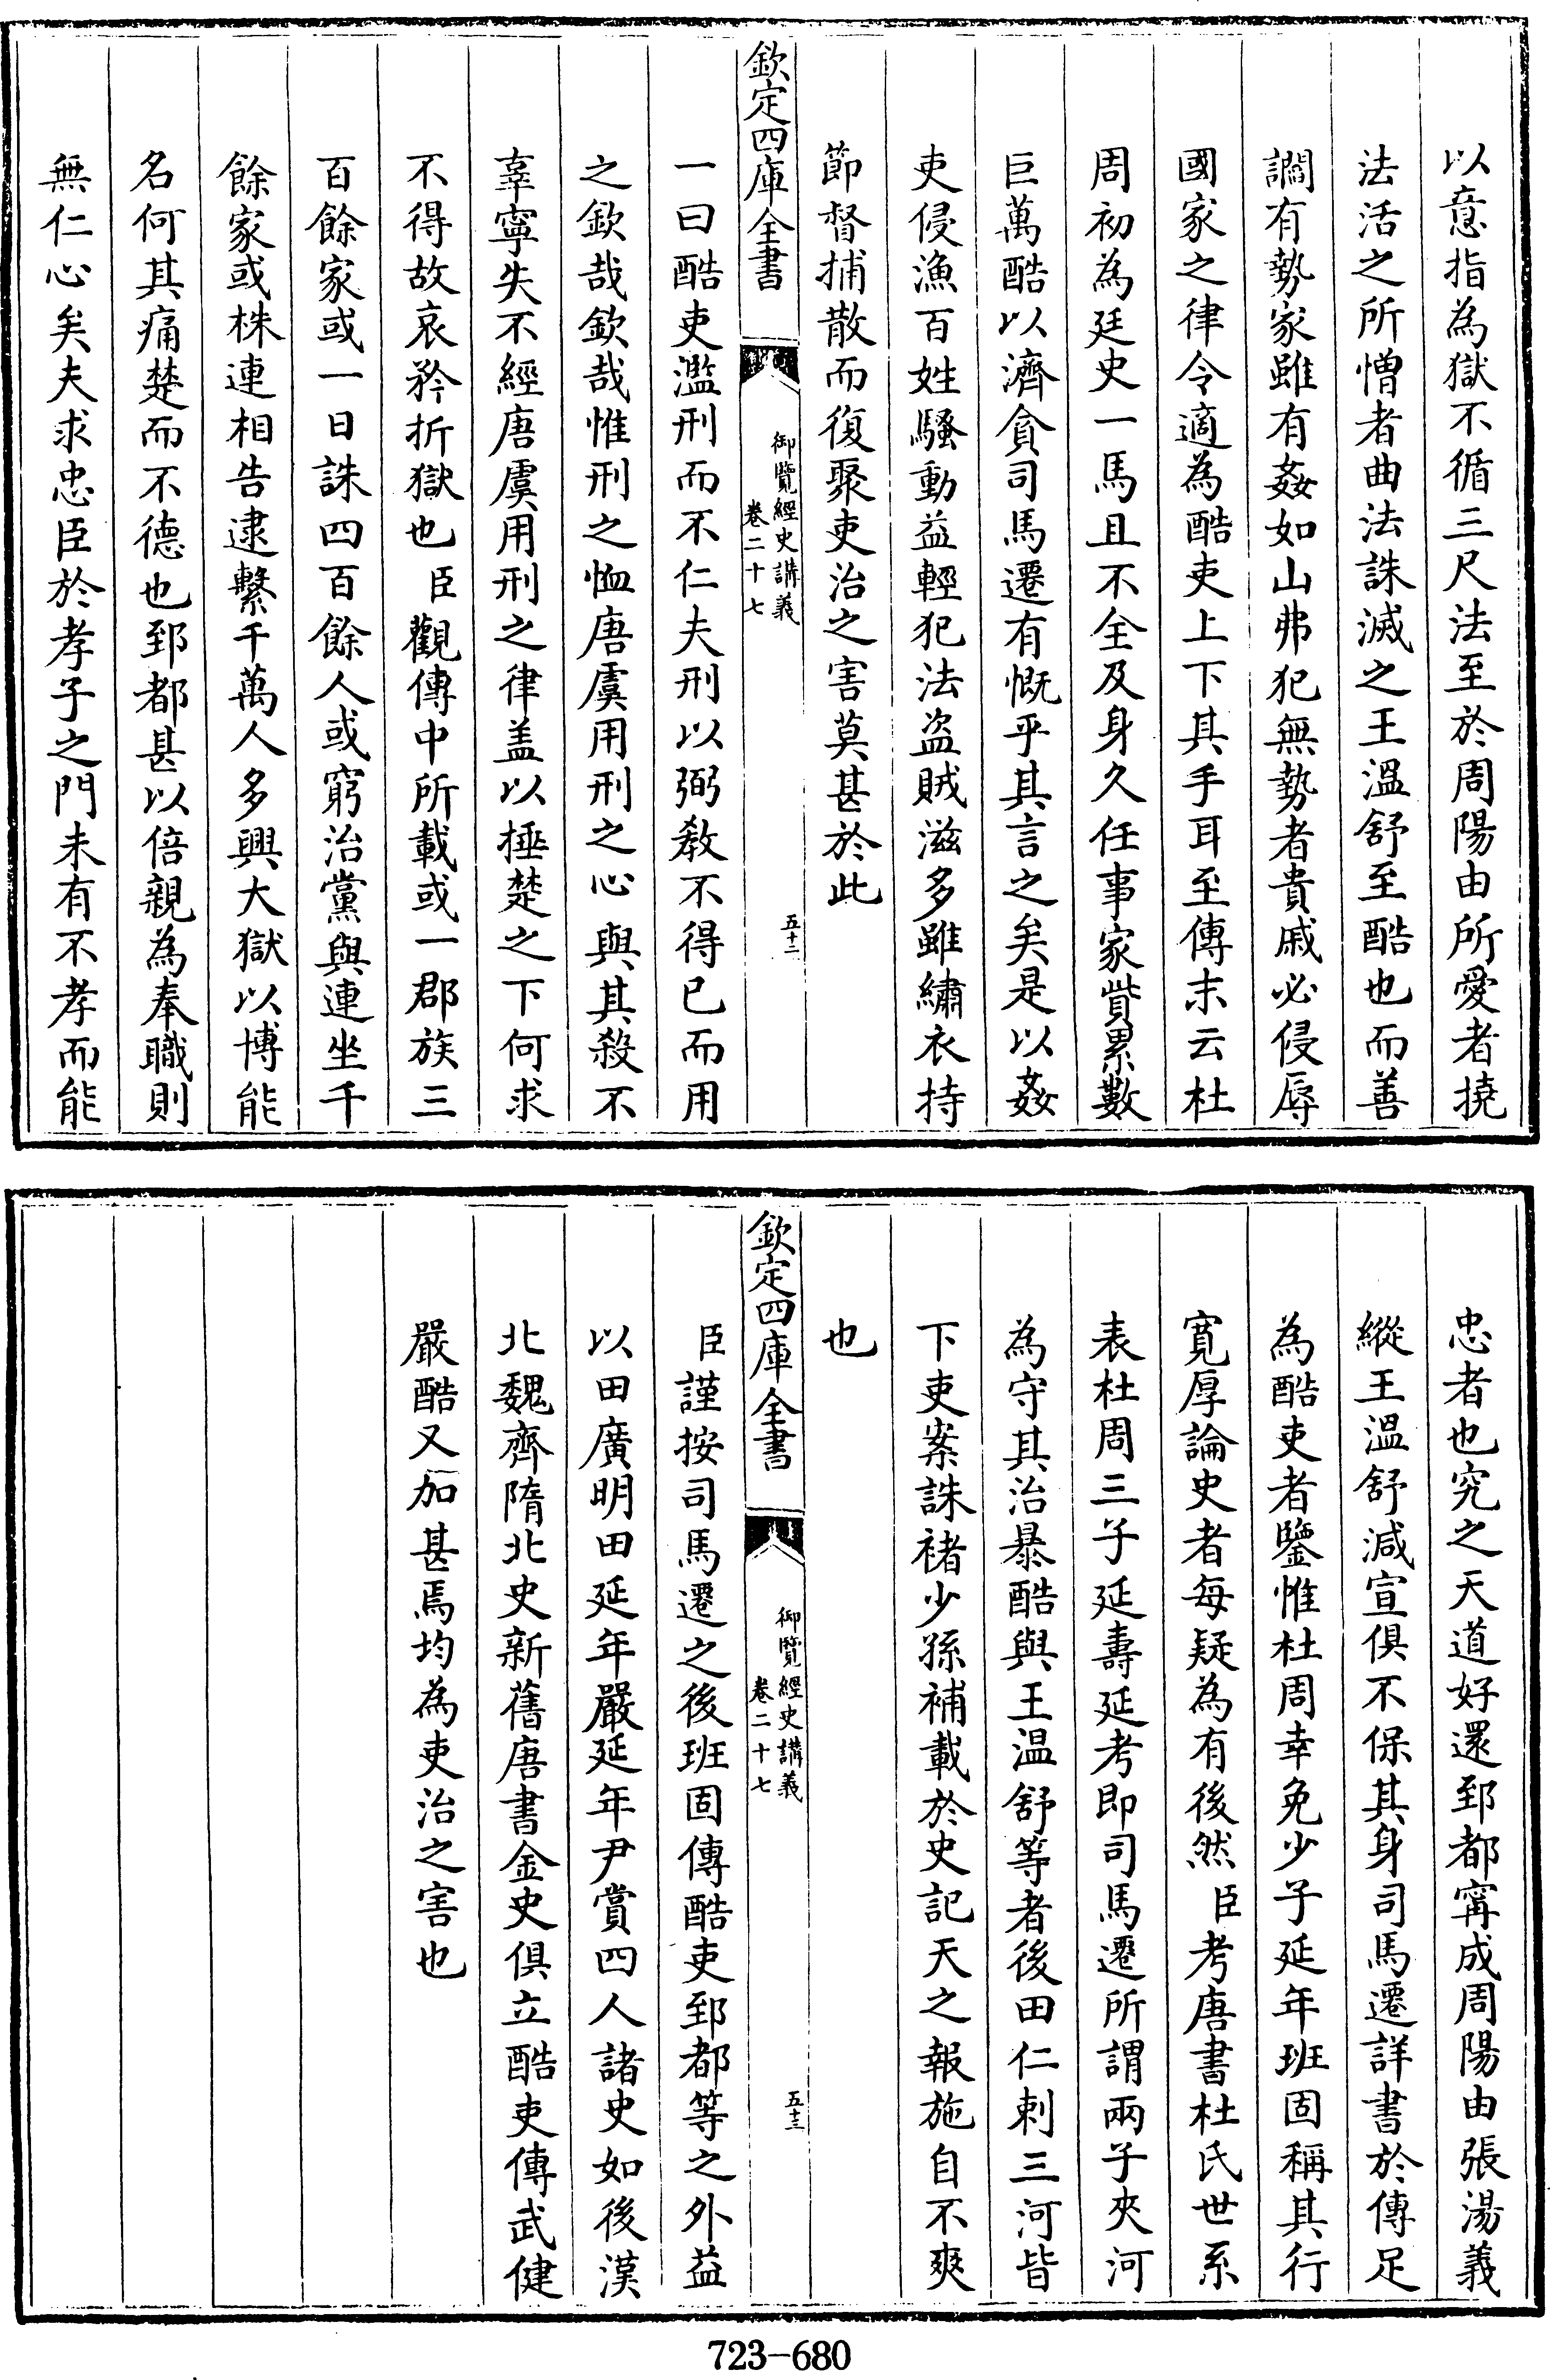 以意指為獄不循三尺法至於周陽由所愛者撓
法活之所憎者曲法誅滅之王溫舒至酷也而善
讇有勢家雖有姦如山弗犯無勢者貴戚必侵辱
國家之律令適為酷吏上下其手耳至傳末云杜
周初為廷史一馬且不全及身久任事家貲累數
巨萬酷以濟貪司馬遷有慨乎其言之矣是以姦
吏侵漁百姓騷動益輕犯法盜賊滋多雖繡衣持
節督捕散而復聚吏治之害莫甚於此
欽定四庫全書
御覽經史講義
卷二十七
五十二
一曰酷吏濫刑而不仁夫刑以弼教不得已而用
之欽哉欽哉惟刑之恤唐虞用刑之心與其殺不
辜寧失不經唐虞用刑之律盖以捶楚之下何求
不得故哀矜折獄也臣觀傳中所載或一郡族三
百餘家或一日誅四百餘人或窮治黨與連坐千
餘家或株連相告逮繫千萬人多興大獄以博能
名何其痛楚而不德也郅都甚以倍親為奉職則
無仁心矣夫求忠臣於孝子之門未有不孝而能
忠者也究之天道好還郅都甯成周陽由張湯義
縱王溫舒減宣俱不保其身司馬遷詳書於傳足
為酷吏者鑒惟杜周幸免少子延年班固稱其行
寬厚論史者每疑為有後然臣考唐書杜氏世系
表杜周三子延壽延考即司馬遷所謂兩子夾河
為守其治暴酷與王溫舒等者後田仁刺三河皆
下吏案誅褚少孫補載於史記天之報施自不爽
也
欽定四庫全書
御覽經史講義
卷二十七
五十三
臣謹按司馬遷之後班固傳酷吏郅都等之外益
以田廣明田延年嚴延年尹賞四人諸史如後漢
北魏齊隋北史新舊唐書金史俱立酷吏傳武健
嚴酷又加甚焉均為吏治之害也
723-680